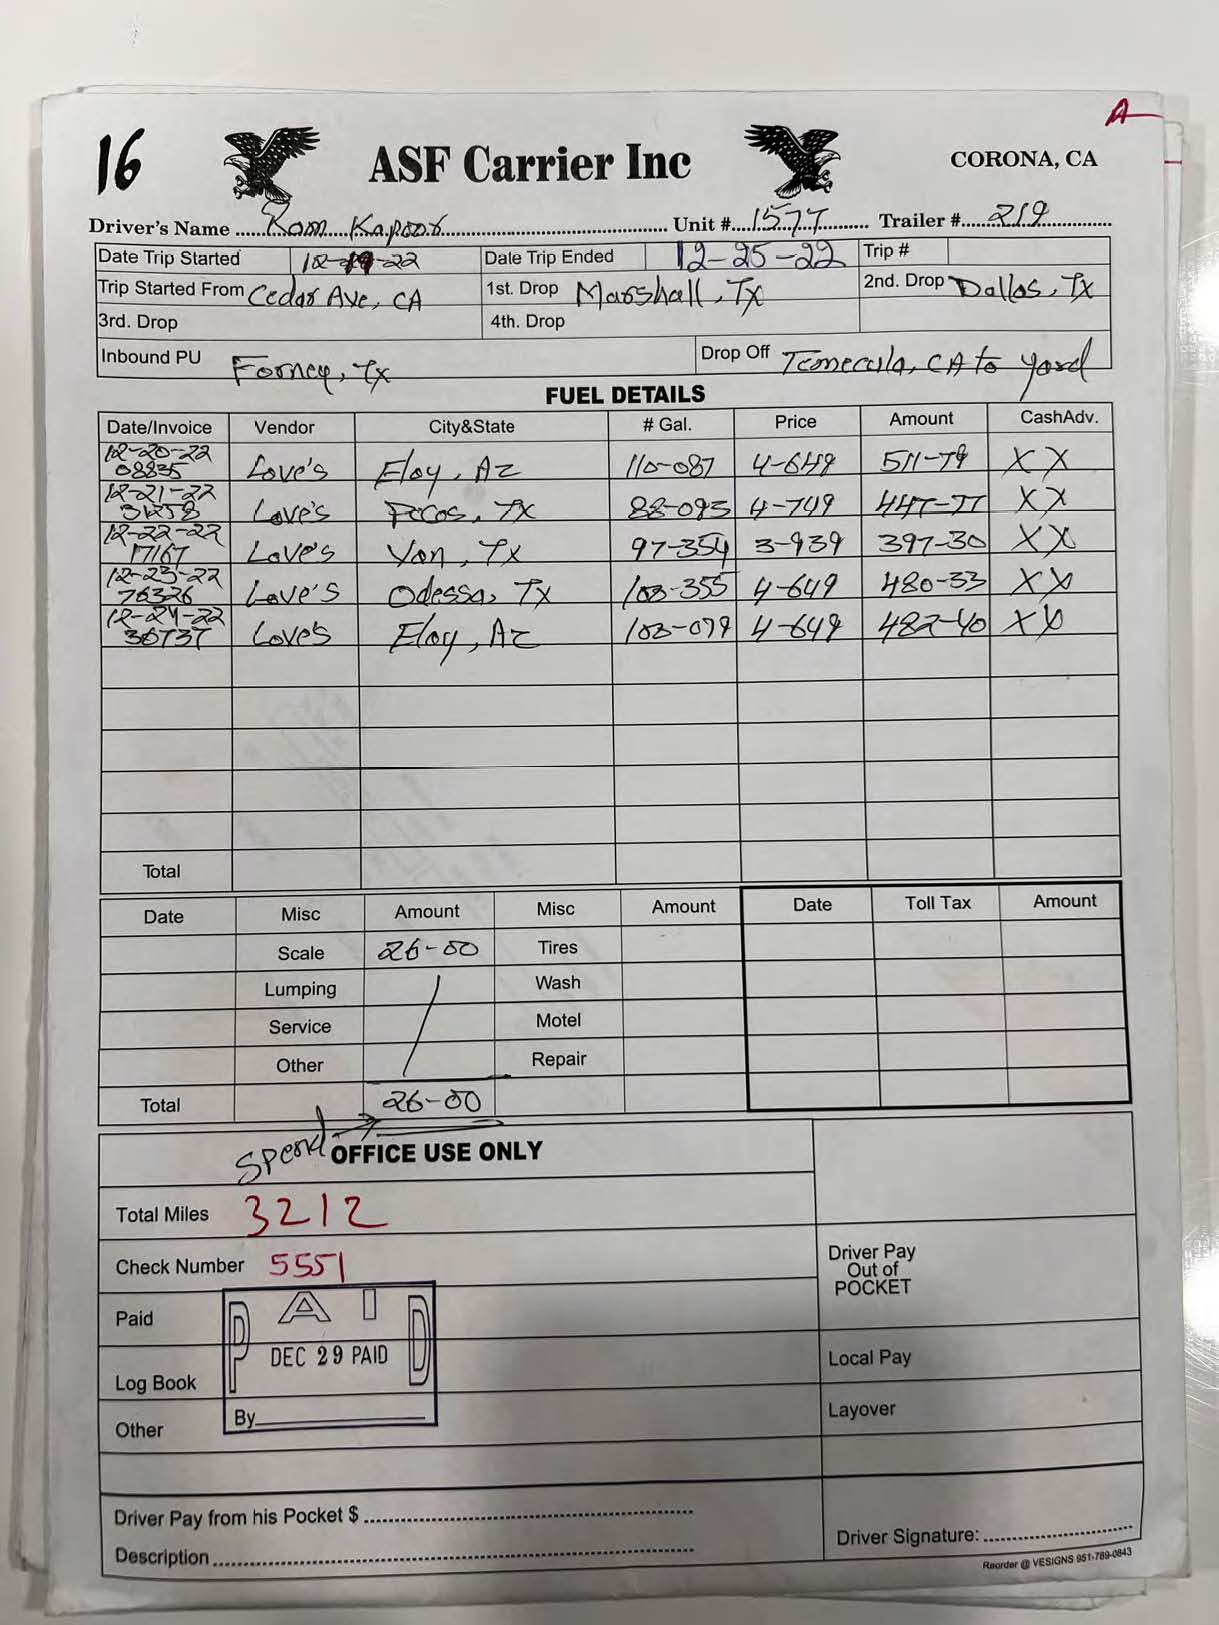 A
16
ASF Carrier Inc
CORONA, CA
Driver's Name Ram Kapoor Unit # 1577 Trailer # 219
Date Trip Started 12-19-22 Date Trip Ended 12-25-22 Trip #
Trip Started From Cedar Ave, CA 1st. Drop Marshall, Tx 2nd. Drop Dallas, Tx
3rd. Drop 4th. Drop
Inbound PU Forney, Tx Drop Off Temecula, CA to yard
FUEL DETAILS
Date/Invoice Vendor City&State # Gal. Price Amount CashAdv.
12-20-22 08835 Love's Eloy, Az 110-087 4-649 511-79 XX
12-21-22 Love's Pecos, Tx 88-093 4-749 447-77 XX
12-22-22 17167 Love's Van, Tx 97-354 3-939 397-30 XX
12-23-22 76326 Love's Odessa, Tx 103-355 4-649 480-33 XX
12-24-22 36737 Love's Eloy, Az 103-079 4-649 482-40 XX
Total
Date Misc Amount Misc Amount Date Toll Tax Amount
Scale 26-00 Tires
Lumping Wash
Service Motel
Other Repair
Total 26-00
Spend
OFFICE USE ONLY
Total Miles 3212
Check Number 5551
Driver Pay Out of POCKET
Paid
PAID
DEC 29 PAID
By
Local Pay
Log Book
Layover
Other
Driver Pay from his Pocket $
Description
Driver Signature:
Reorder @ VESIGNS 951-789-0843